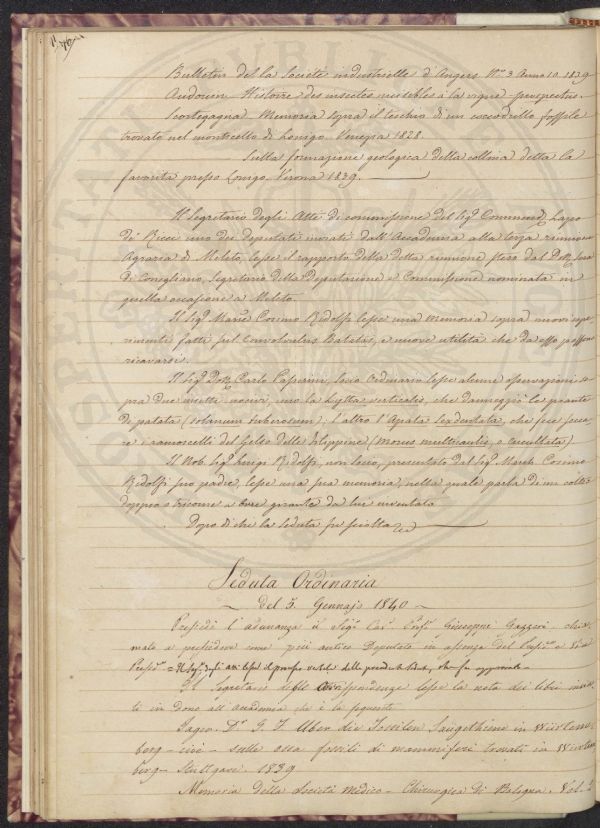 Bulletin de la Societè industrielle d'Angers N.º 3 Anno 10. 1839
Audouin Histoire des insectes nuisibles à la vigne - prospectus.
Scortegagna Memoria sopra il teschio di un coccodrillo fossile
trovato nel monticello di Lonigo. Venezia 1828.
Sulla formazione geologica della collina detta la
favorita presso Lonigo. Verona 1839.
Il Segretario degli Atti di commissione del Sig.r Commend.r Lapo
de' Ricci uno dei deputati inviati dall'Accademia alla terza riunione
Agraria di Meleto, lesse il rapporto della detta riunione, steso dal Dott.
di Conegliano, Segretario della Deputazione e Commissione nominata in
quella occasione a Meleto.
Il Sig.r March.e Cosimo Ridolfi lesse una memoria sopra nuovi espe-
rimenti fatti sul Convolvulus Batatas, e nuove utilità che da esso possono
ricavarsi.
Il Sig.r Dott. Carlo Passerini, socio Ordinario lesse alcune osservazioni so-
pra due insetti nocivi, uno la Lytta verticalis, che danneggiò le piante
di patata (solanum tuberosum); l'altro l'Apata Sexdentata, che fece secca-
re i ramoscelli del Gelso delle Filippine (Morus multicaulis, o cucullata)
Il Nob. Sig.r Luigi Ridolfi, non socio, presentato dal Sig.r March. Cosimo
Ridolfi suo padre, lesse una sua memoria, nella quale parla di un coltro
doppio o tricome a orecchio girante da lui inventata
Dopo di che la seduta fu sciolta
Seduta Ordinaria
del 5. Gennajo 1840
Presiedè l'adunanza il Sig.r Cav. Prof.r Giuseppe Gazzeri chia-
mato a presiedere come più antico Deputato in assenza del Presid.e e Vice
Presid.e Il Seg. degli atti lesse il processo verbale della precedente seduta, che fu approvato
Il Segretario delle Corrispondenze lesse la nota dei libri invia-
ti in dono all'accademia che è la seguente
Jager. D.r G. F. Uber die Fossilen Säugethiere in Würtem-
berg - cioè - sulle ossa fossili di mammiferi trovati in Würtem
berg - Stuttgart. 1839
Memoria della Società Medico - Chirurgica di Bologna. Vol. 2